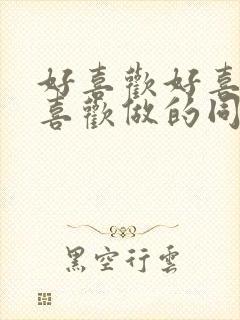 好喜歡好喜
喜歡做的同
黑空行雲